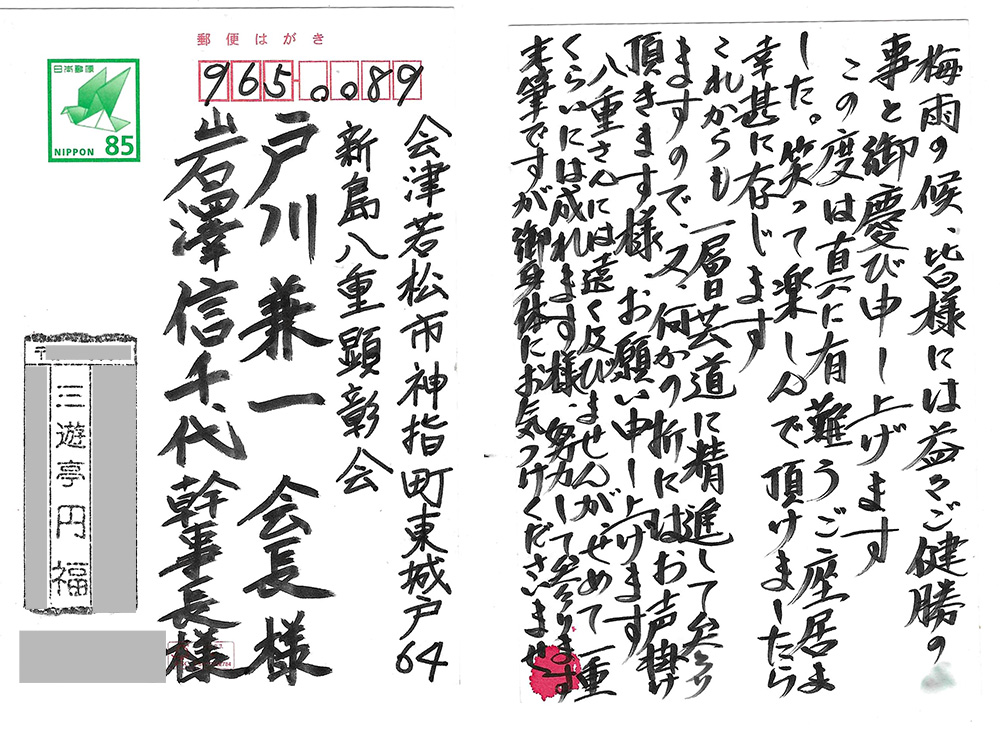 郵便はがき
日本郵便
NIPPON 85
965-0089
会津若松市神指町東城戸64
新島八重顕彰会
戸川兼一 会長様
岩澤信千代 幹事長様
〒
三遊亭円福
梅雨の候、皆様には益々ご健勝の
事と御慶び申し上げます
この度は真に有難うご座居ま
した。笑って楽しんで頂けましたら
幸甚に存じます
これからも一層日芸道に精進して参り
ますので、又、何かの折にはお声掛け
頂きます様、お願い申し上げます
八重さんには遠く及びませんが、せめて一重
くらいには成れます様、努力して参ります
末筆ですが御身体にお気つけくださいませ